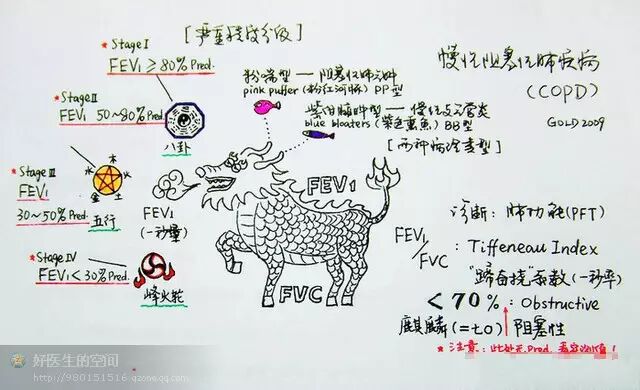 [严重程度分级]
*Stage I
FEV₁ ≥ 80% Pred.
*Stage II
FEV₁ 50~80% Pred.
八卦
*Stage III
FEV₁
30~50% Pred.
木
火
土
金
水
五行
*Stage IV
FEV₁ < 30% Pred.
烽火轮
FEV₁
(一秒量)
粉喘型—阻塞性肺气肿
pink puffer (粉红河豚) PP型
紫绀臃肿型—慢性支气管炎
blue bloaters (紫色熏鱼) BB型
[两种病理类型]
FEV₁
FVC
慢性阻塞性肺疾病
(COPD)
GOLD 2009
诊断: 肺功能(PFT)
FEV₁/FVC : Tiffeneau Index
"蹄奋挠系数(一秒率)
< 70% : Obstructive
麒麟(=七0) 阻塞性
*注意: 此处无Pred.
好医生的空间
http://980151516.qzone.qq.com